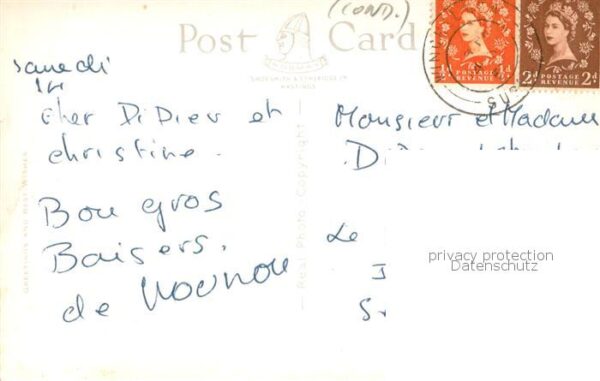 (COND.)
Post Card
SHOESMITH & ETHERIDGE LTD
HASTINGS
Samedi
14
Cher Didier et
christine.
Bon gros
Baisers.
de Nounou
GREETINGS AND BEST WISHES
Real Photo Copyright
Monsieur et Madame
Le
½d ½d
POSTAGE REVENUE
2d 2d
POSTAGE REVENUE
privacy protection
Datenschutz